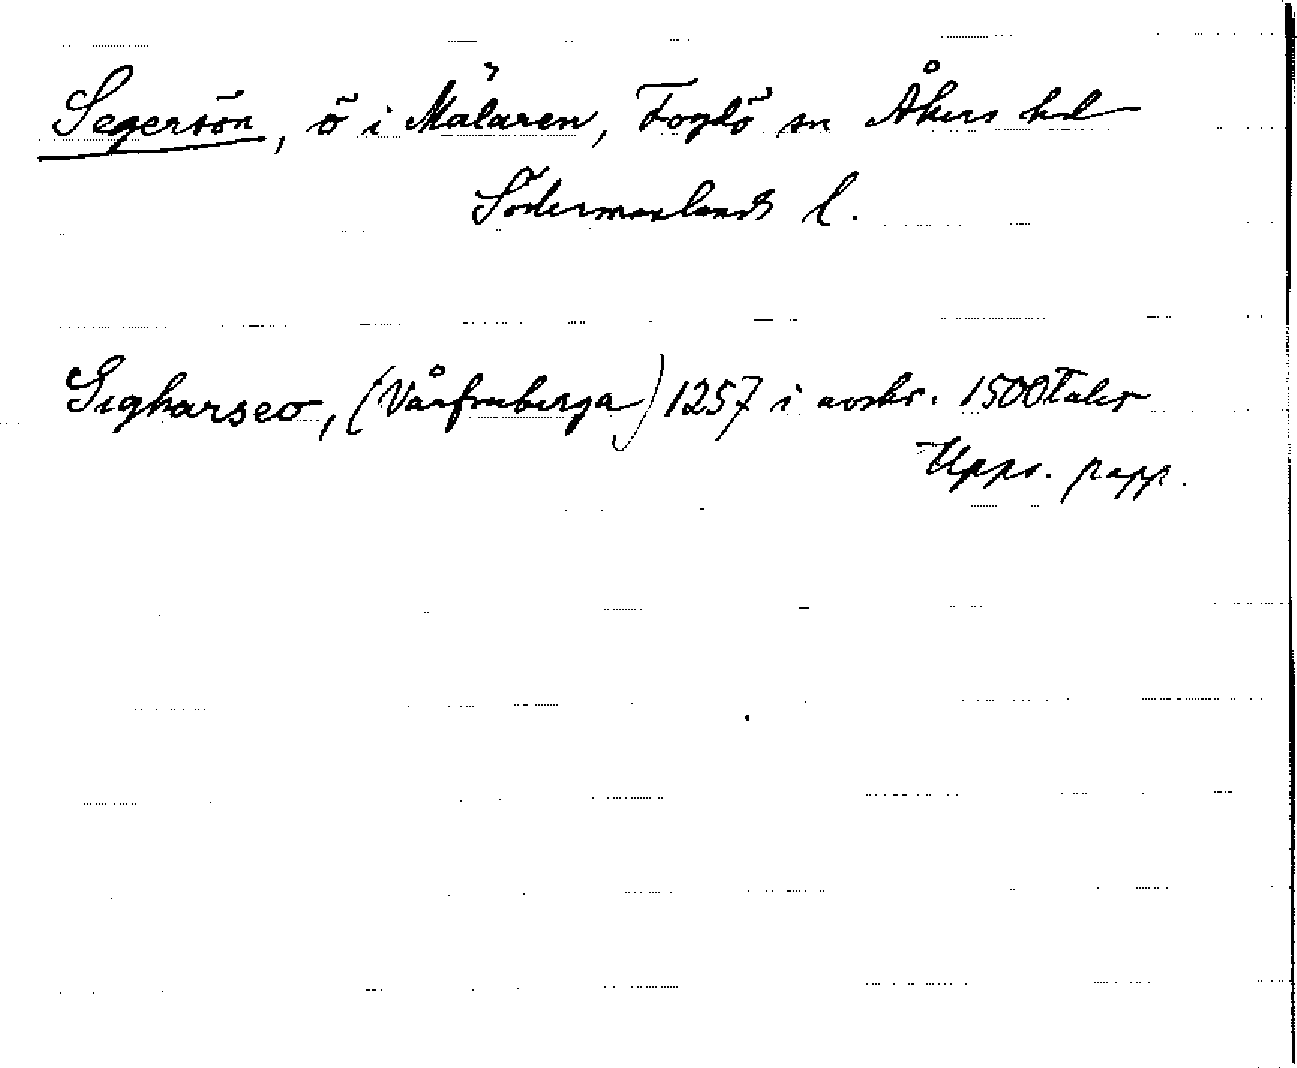 Segersön, ö i Mälaren, Fogdö sn Åkers hd
Södermanlands l.
Sigharseo, (Vårfruberga) 1257 i avskr. 1500talet
Upps. papp.